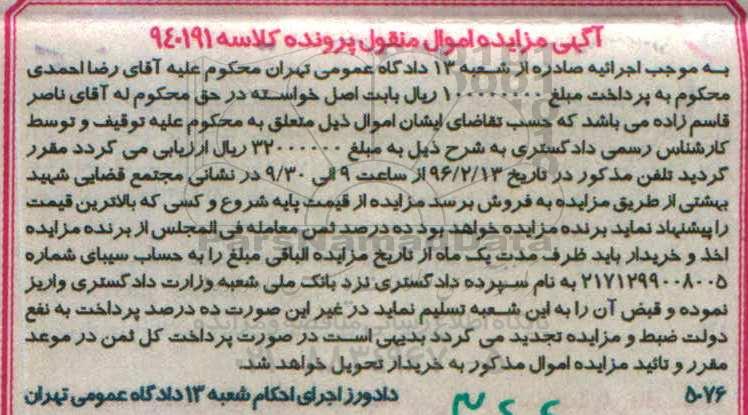 آگهی مزایده اموال منقول پرونده کلاسه ۹۴۰۱۹۱
به موجب اجرائیه صادره از شعبه ۱۳ دادگاه عمومی تهران محکوم علیه آقای رضا احمدی
محکوم به پرداخت مبلغ ۱۰۰۰۰۰۰۰۰۰ ریال بابت اصل خواسته در حق محکوم له آقای ناصر
قاسم زاده می باشد که حسب تقاضای ایشان اموال ذیل متعلق به محکوم علیه توقیف و توسط
کارشناس رسمی دادگستری به شرح ذیل به مبلغ ۳۲۰۰۰۰۰۰ ریال ارزیابی می گردد مقرر
گردید تلفن مذکور در تاریخ ۹۶/۲/۱۳ از ساعت ۹ الی ۹/۳۰ در نشانی مجتمع قضایی شهید
بهشتی از طریق مزایده به فروش برسد مزایده از قیمت پایه شروع و کسی که بالاترین قیمت
را پیشنهاد نماید برنده مزایده خواهد بود ده درصد ثمن معامله فی المجلس از برنده مزایده
اخذ و خریدار باید ظرف مدت یک ماه از تاریخ مزایده الباقی مبلغ را به حساب سیبای شماره
۲۱۷۱۲۹۹۰۰۸۰۰۵ به نام سپرده دادگستری نزد بانک ملی شعبه وزارت دادگستری واریز
نموده و قبض آن را به این شعبه تسلیم نماید در غیر این صورت ده درصد پرداخت به نفع
دولت ضبط و مزایده تجدید می گردد بدیهی است در صورت پرداخت کل ثمن در موعد
مقرر و تائید مزایده اموال مذکور به خریدار تحویل خواهد شد.
۵۰۷۶ دادورز اجرای احکام شعبه ۱۳ دادگاه عمومی تهران
ParsNamadData